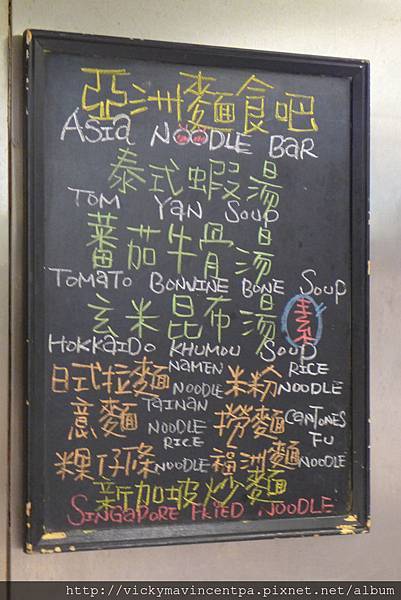 亞洲麵食吧
ASIA NOODLE BAR
泰式蝦湯
TOM YAN SOUP
蕃茄牛骨湯
TOMATO BONVINE BONE SOUP
玄米昆布湯 素
HOKKAIDO KHUMOU SOUP
日式拉麵 NAMEN NOODLE 米粉 RICE NOODLE
意麵 TAINAN NOODLE 撈麵 CANTONES
粿仔條 RICE NOODLE 福洲麵 FU NOODLE
新加坡炒麵
SINGAPORE FRIED NOODLE
http://vickymavincentpa.pixnet.net/album